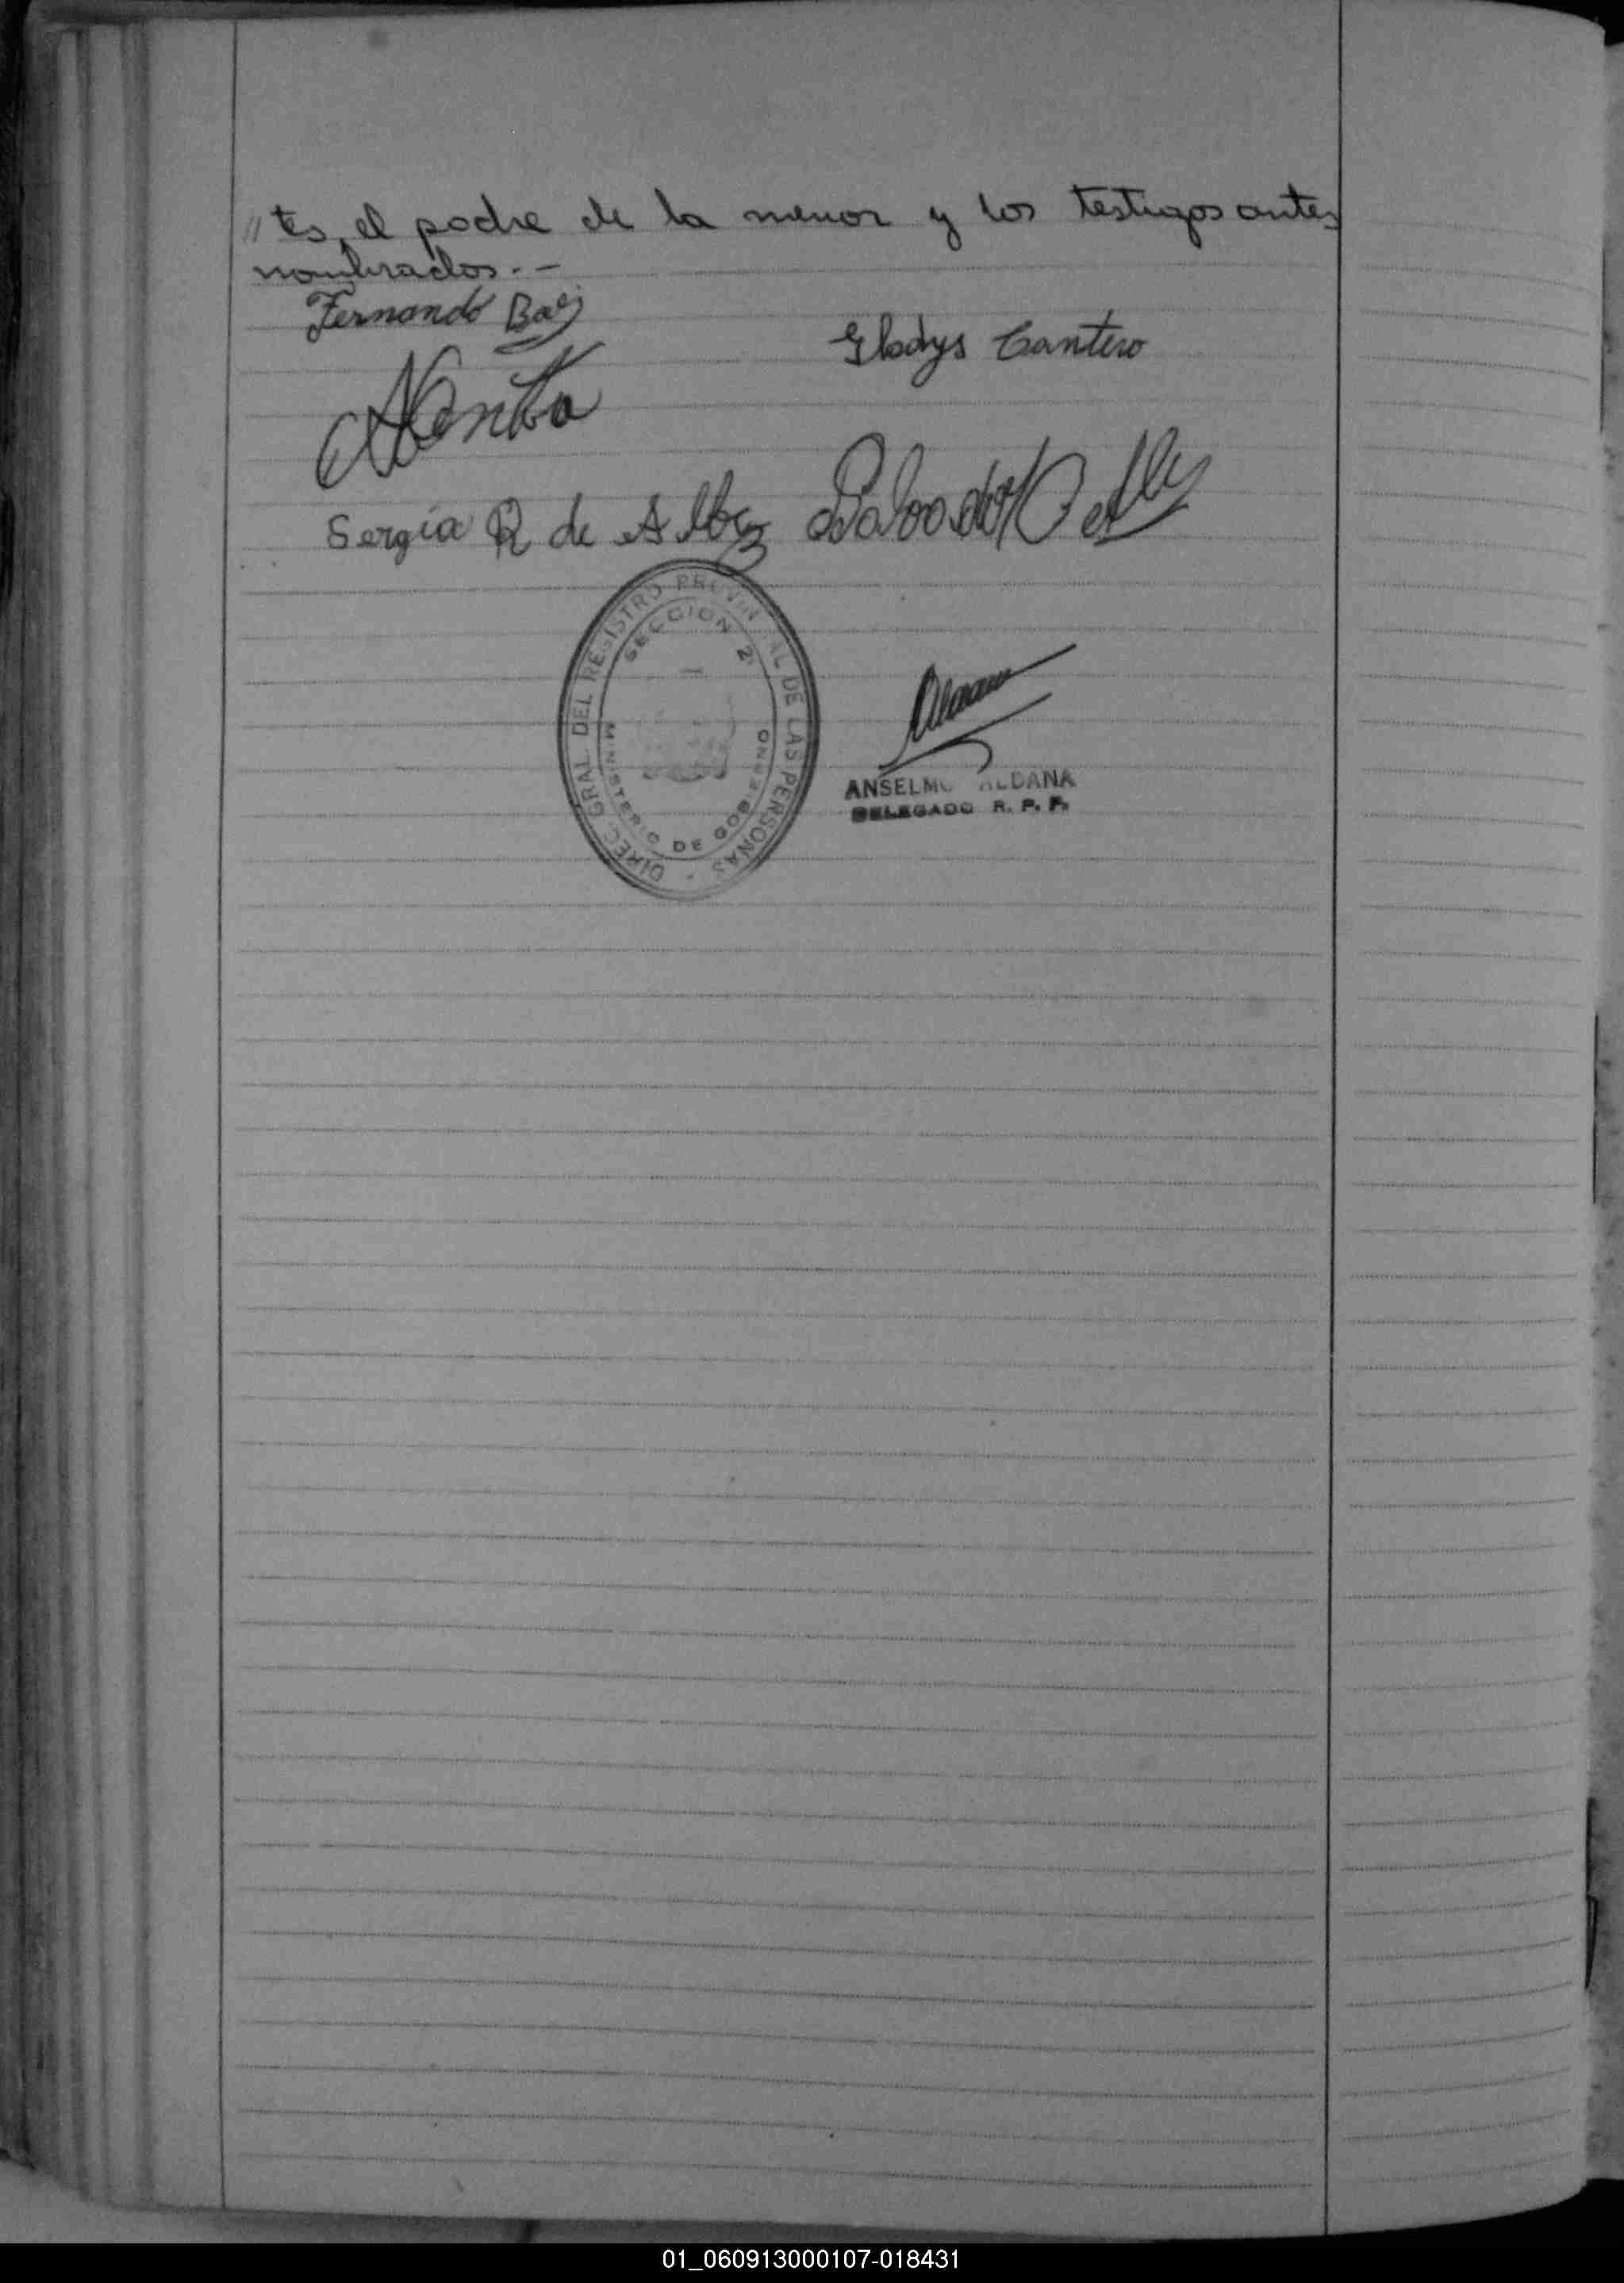 // tes, el padre de la menor y los testigos antes
nombrados. -
Fernando Baez
Gladys Cantero
Sergia R de Albez
DIREC. GRAL. DEL REGISTRO PROVINCIAL DE LAS PERSONAS
SECCION 2
MINISTERIO DE GOBIERNO
ANSELMO ALDANA
DELEGADO R. P. P.
01_060913000107-018431